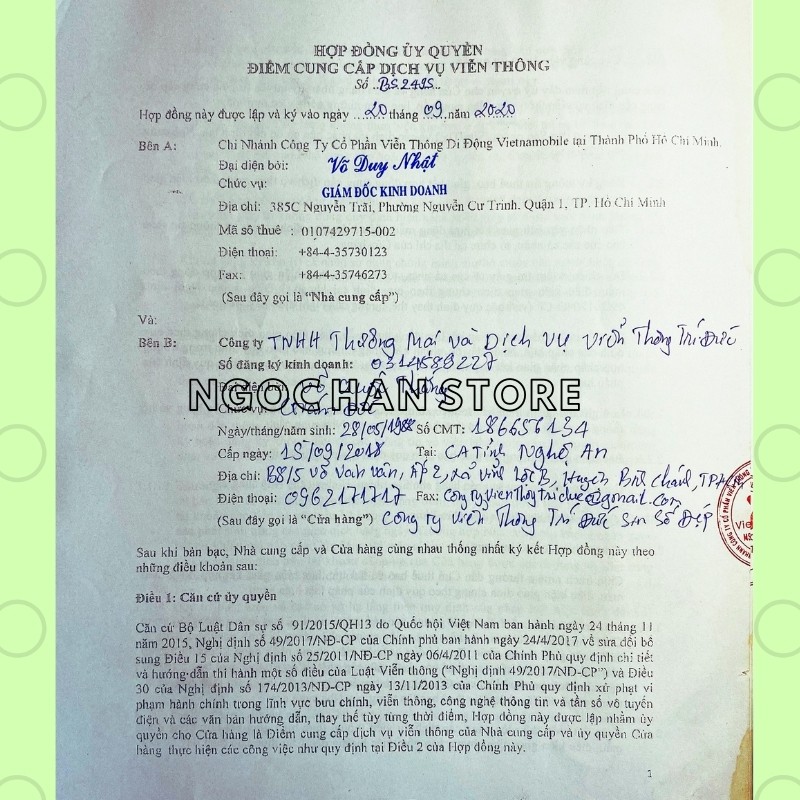 HỢP ĐỒNG ỦY QUYỀN
ĐIỂM CUNG CẤP DỊCH VỤ VIỄN THÔNG
Số ..BS2495..
Hợp đồng này được lập và ký vào ngày ....20 tháng 09 năm 2020
Bên A: Chi Nhánh Công Ty Cổ Phần Viễn Thông Di Động Vietnamobile tại Thành Phố Hồ Chí Minh.
Đại diện bởi: Võ Duy Nhật
Chức vụ: GIÁM ĐỐC KINH DOANH
Địa chỉ: 385C Nguyễn Trãi, Phường Nguyễn Cư Trinh, Quận 1, TP. Hồ Chí Minh
Mã số thuế : 0107429715-002
Điện thoại: +84-4-35730123
Fax: +84-4-35746273
(Sau đây gọi là “Nhà cung cấp”)
Và:
Bên B: Công ty TNHH Thương Mại và Dịch vụ viễn Thông Trí Đức
Số đăng ký kinh doanh: 0314589227
Đại diện bởi: Võ
NGOCHAN STORE
Chức vụ: Giám Đốc
Ngày/tháng/năm sinh: 28/05/1988 Số CMT: 186656134
Cấp ngày: 15/09/2018 Tại: CA Tỉnh Nghệ An
Địa chỉ: B8/5 Võ Văn Vân, ẤP 2, xã Vĩnh Lộc B, Huyện Bình Chánh, TP.HCM
Điện thoại: 0962171717 Fax: congtyvienthongtriduc@gmail.com
(Sau đây gọi là “Cửa hàng”) Công ty Viễn Thông Trí Đức Sim Số Đẹp
Sau khi bàn bạc, Nhà cung cấp và Cửa hàng cùng nhau thống nhất ký kết Hợp đồng này theo
những điều khoản sau:
Điều 1: Căn cứ ủy quyền
Căn cứ Bộ Luật Dân sự số 91/2015/QH13 do Quốc hội Việt Nam ban hành ngày 24 tháng 11
năm 2015, Nghị định số 49/2017/NĐ-CP của Chính phủ ban hành ngày 24/4/2017 về sửa đổi bổ
sung Điều 15 của Nghị định số 25/2011/NĐ-CP ngày 06/4/2011 của Chính Phủ quy định chi tiết
và hướng dẫn thi hành một số điều của Luật Viễn thông (“Nghị định 49/2017/NĐ-CP”) và Điều
30 của Nghị định số 174/2013/NĐ-CP ngày 13/11/2013 của Chính Phủ quy định xử phạt vi
phạm hành chính trong lĩnh vực bưu chính, viễn thông, công nghệ thông tin và tần số vô tuyến
điện và các văn bản hướng dẫn, thay thế tùy từng thời điểm, Hợp đồng này được lập nhằm ủy
quyền cho Cửa hàng là Điểm cung cấp dịch vụ viễn thông của Nhà cung cấp và ủy quyền Cửa
hàng thực hiện các công việc như quy định tại Điều 2 của Hợp đồng này.
1